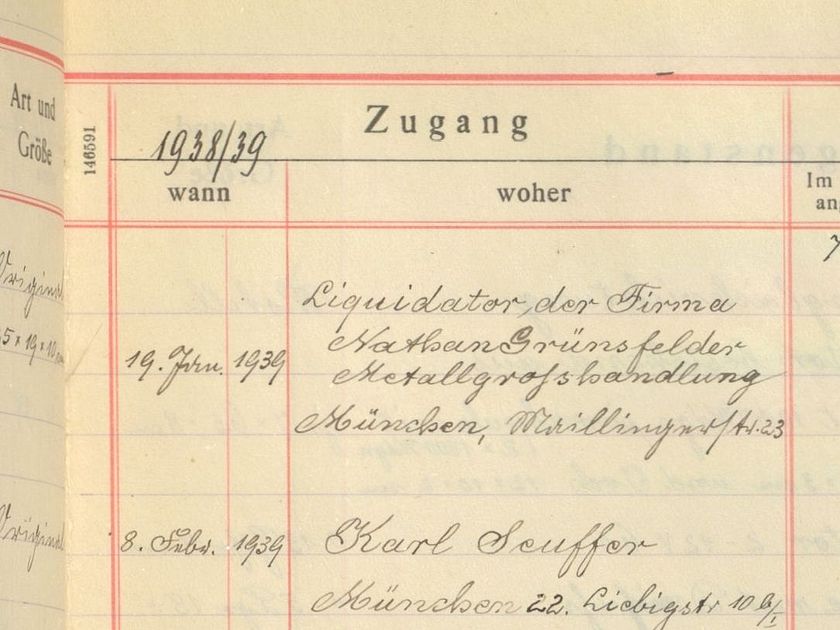 Art und
Größe
146591
1938/39
Zugang
wann
woher
Im
an
Original
5 x 19 x 10
Liquidator der Firma
Nathan Grünsfelder
19. Jan. 1939
Metallgrosshandlung
München, Maillingerstr. 23
Original
8. Febr. 1939
Karl Seuffer
München 22. Liebigstr 10